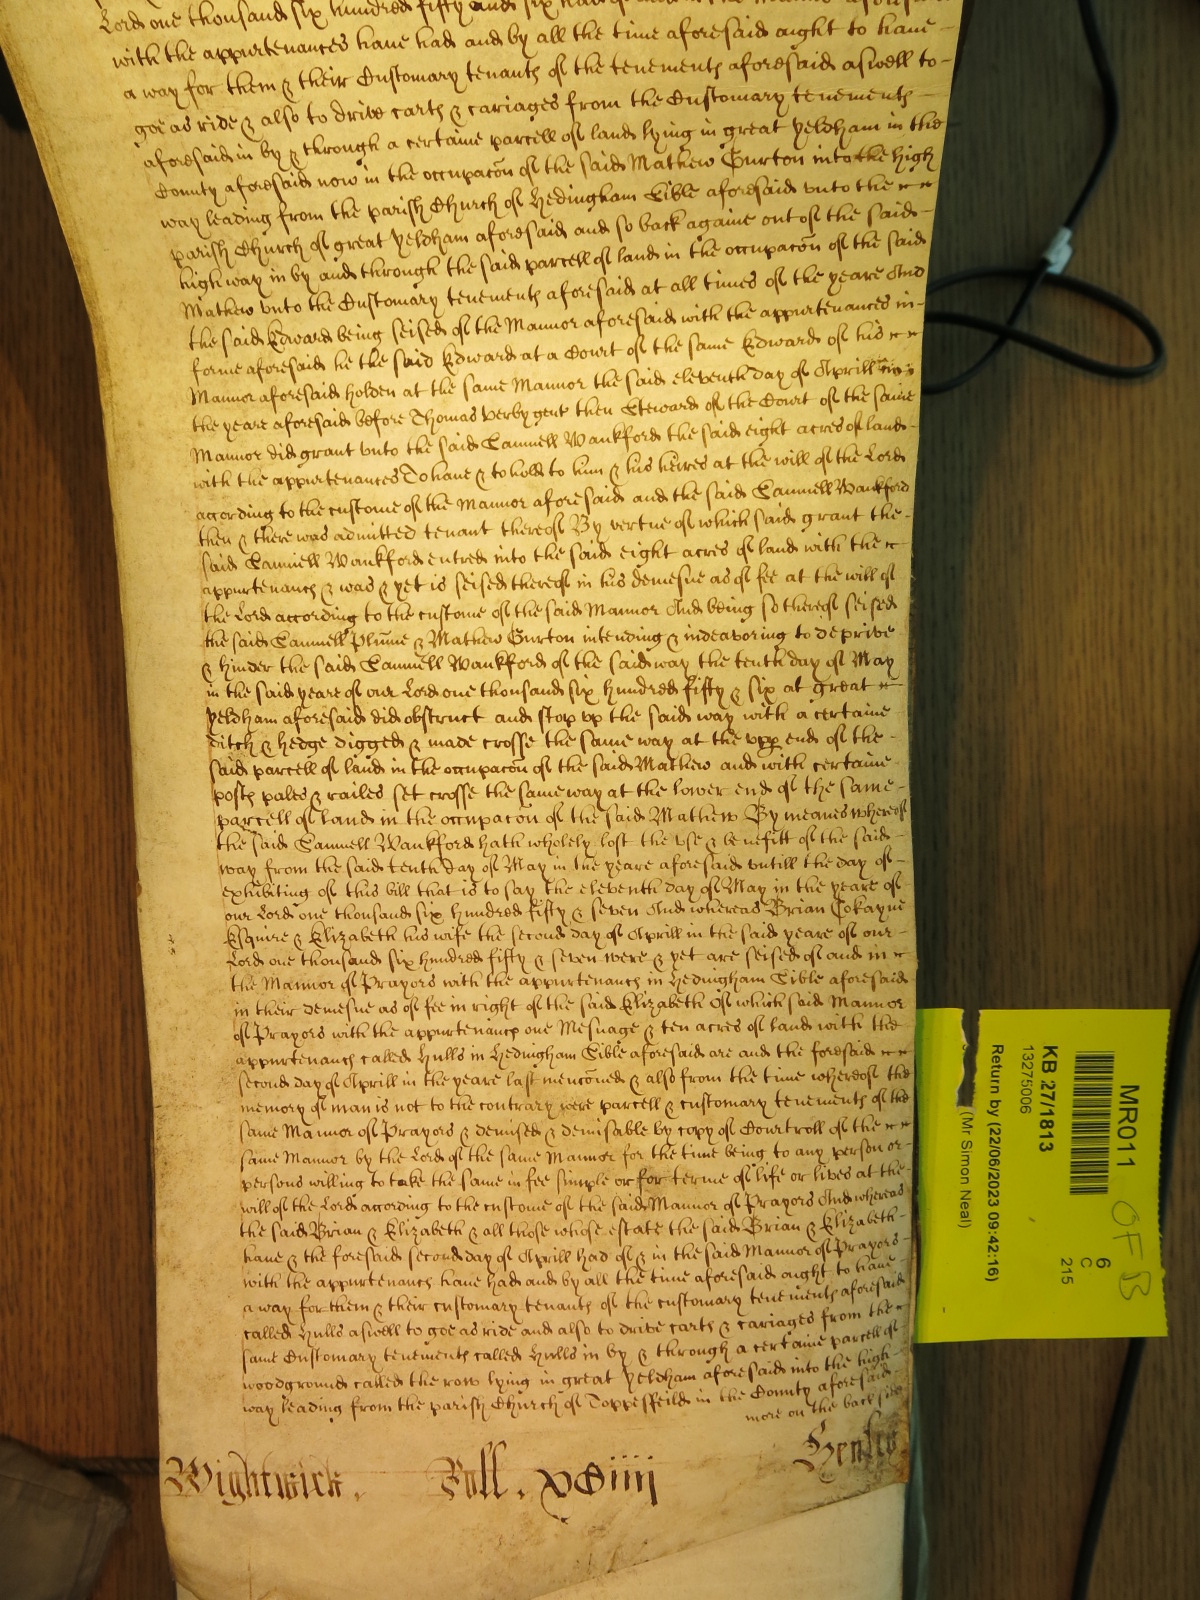 Lord one thousand six hundred fifty and six
with the appurtenances haue had and by all the time aforesaid ought to haue
a way for them & their Customary tenants of the tenements aforesaid aswell to
goe as ride & also to drive carts & cariages from the Customary tenements
aforesaid in by & through a certaine parcell of land lying in great Yeldham in the
County aforesaid now in the occupacōn of the said Mathew Gurton into the high
way leading from the parish Church of Hedingham Sible aforesaid vnto the
parish Church of great Yeldham aforesaid and so back againe out of the said
high way in by and through the said parcell of land in the occupacōn of the said
Mathew vnto the Customary tenements aforesaid at all times of the yeare And
the said Edward being seised of the Mannor aforesaid with the appurtenances in
forme aforesaid he the said Edward at a Court of the same Edward of his
Mannor aforesaid holden at the same Mannor the said eleventh day of Aprill in
the yeare aforesaid before Thomas Verby gent then Steward of the Court of the same
Mannor did grant vnto the said Samuell Wankford the said eight acres of land
with the appurtenances To haue & to hold to him & his heires at the will of the Lord
according to the custome of the Mannor aforesaid and the said Samuell Wankford
then & there was admitted tenant thereof By vertue of which said grant the
said Samuell Wankford entred into the said eight acres of land with the
appurtenancs & was & yet is seised thereof in his demesne as of fee at the will of
the Lord according to the custome of the said Mannor And being so thereof seised
the said Samuell Plume & Mathew Gurton intending & indeavoring to deprive
& hinder the said Samuell Wankford of the said way the tenth day of May
in the said yeare of our Lord one thousand six hundred fifty & six at great
Yeldham aforesaid did obstruct and stop vp the said way with a certaine
ditch & hedge digged & made crosse the same way at the vpp end of the
said parcell of land in the occupacōn of the said Mathew and with certaine
posts pales & railes set crosse the same way at the lower end of the same
parcell of land in the occupacōn of the said Mathew By meanes whereof
the said Samuell Wankford hath wholely lost the vse & benefitt of the said
way from the said tenth day of May in the yeare aforesaid vntill the day of
exhibiting of this bill that is to say the eleventh day of May in the yeare of
our Lord one thousand six hundred fifty & seven And whereas Brian Cokayne
Esquire & Elizabeth his wife the second day of Aprill in the said yeare of our
Lord one thousand six hundred fifty & seven were & yet are seised of and in
the Mannor of Prayors with the appurtenancs in Hedingham Sible aforesaid
in their demesne as of fee in right of the said Elizabeth Of which said Mannor
of Prayors with the appurtenancs one Mesuage & ten acres of land with the
appurtenancs called Hulls in Hedingham Sible aforesaid are and the foresaid
second day of Aprill in the yeare last mencōned & also from the time whereof the
memory of man is not to the contrary were parcell & customary tenements of the
same Mannor of Prayors & demised & demisable by copy of Courtroll of the
same Mannor by the Lord of the same Mannor for the time being to any person or
persons willing to take the same in fee simple or for terme of life or lives at the
will of the Lord according to the custome of the said Mannor of Prayors And whereas
the said Brian & Elizabeth & all those whose estate the said Brian & Elizabeth
haue & the foresaid second day of Aprill had of & in the said Mannor of Prayors
with the appurtenancs haue had and by all the time aforesaid ought to haue
a way for them & their customary tenants of the customary tenements aforesaid
called Hulls aswell to goe as ride and also to drive carts & cariages from the
same Customary tenements called Hulls in by & through a certaine parcell of
woodground called the row lying in great Yeldham aforesaid into the high
way leading from the parish Church of Toppesfeild in the County aforesaid
more on the back side
Wightwick. Roll. xciiij Henley
MR011
KB 27/1813
13275006
Return by (22/06/2023 09:42:16)
(Mr Simon Neal)
6
C
215
OF B